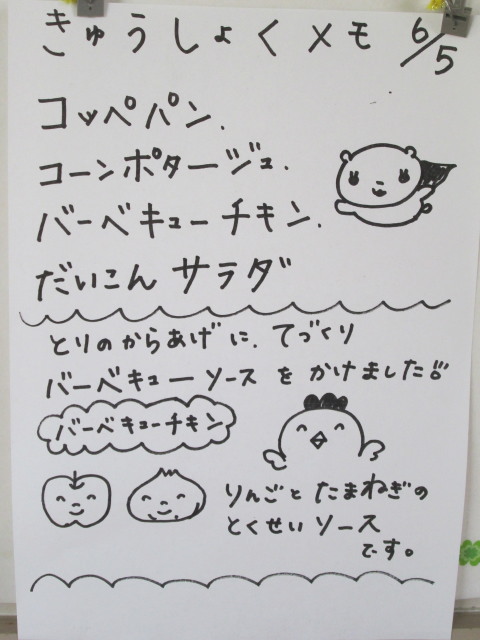 きゅうしょくメモ 6/5
コッペパン.
コーンポタージュ.
バーベキューチキン.
だいこんサラダ
とりのからあげに、てづくり
バーベキューソースをかけました!!
バーベキューチキン
りんごとたまねぎの
とくせいソース
です。